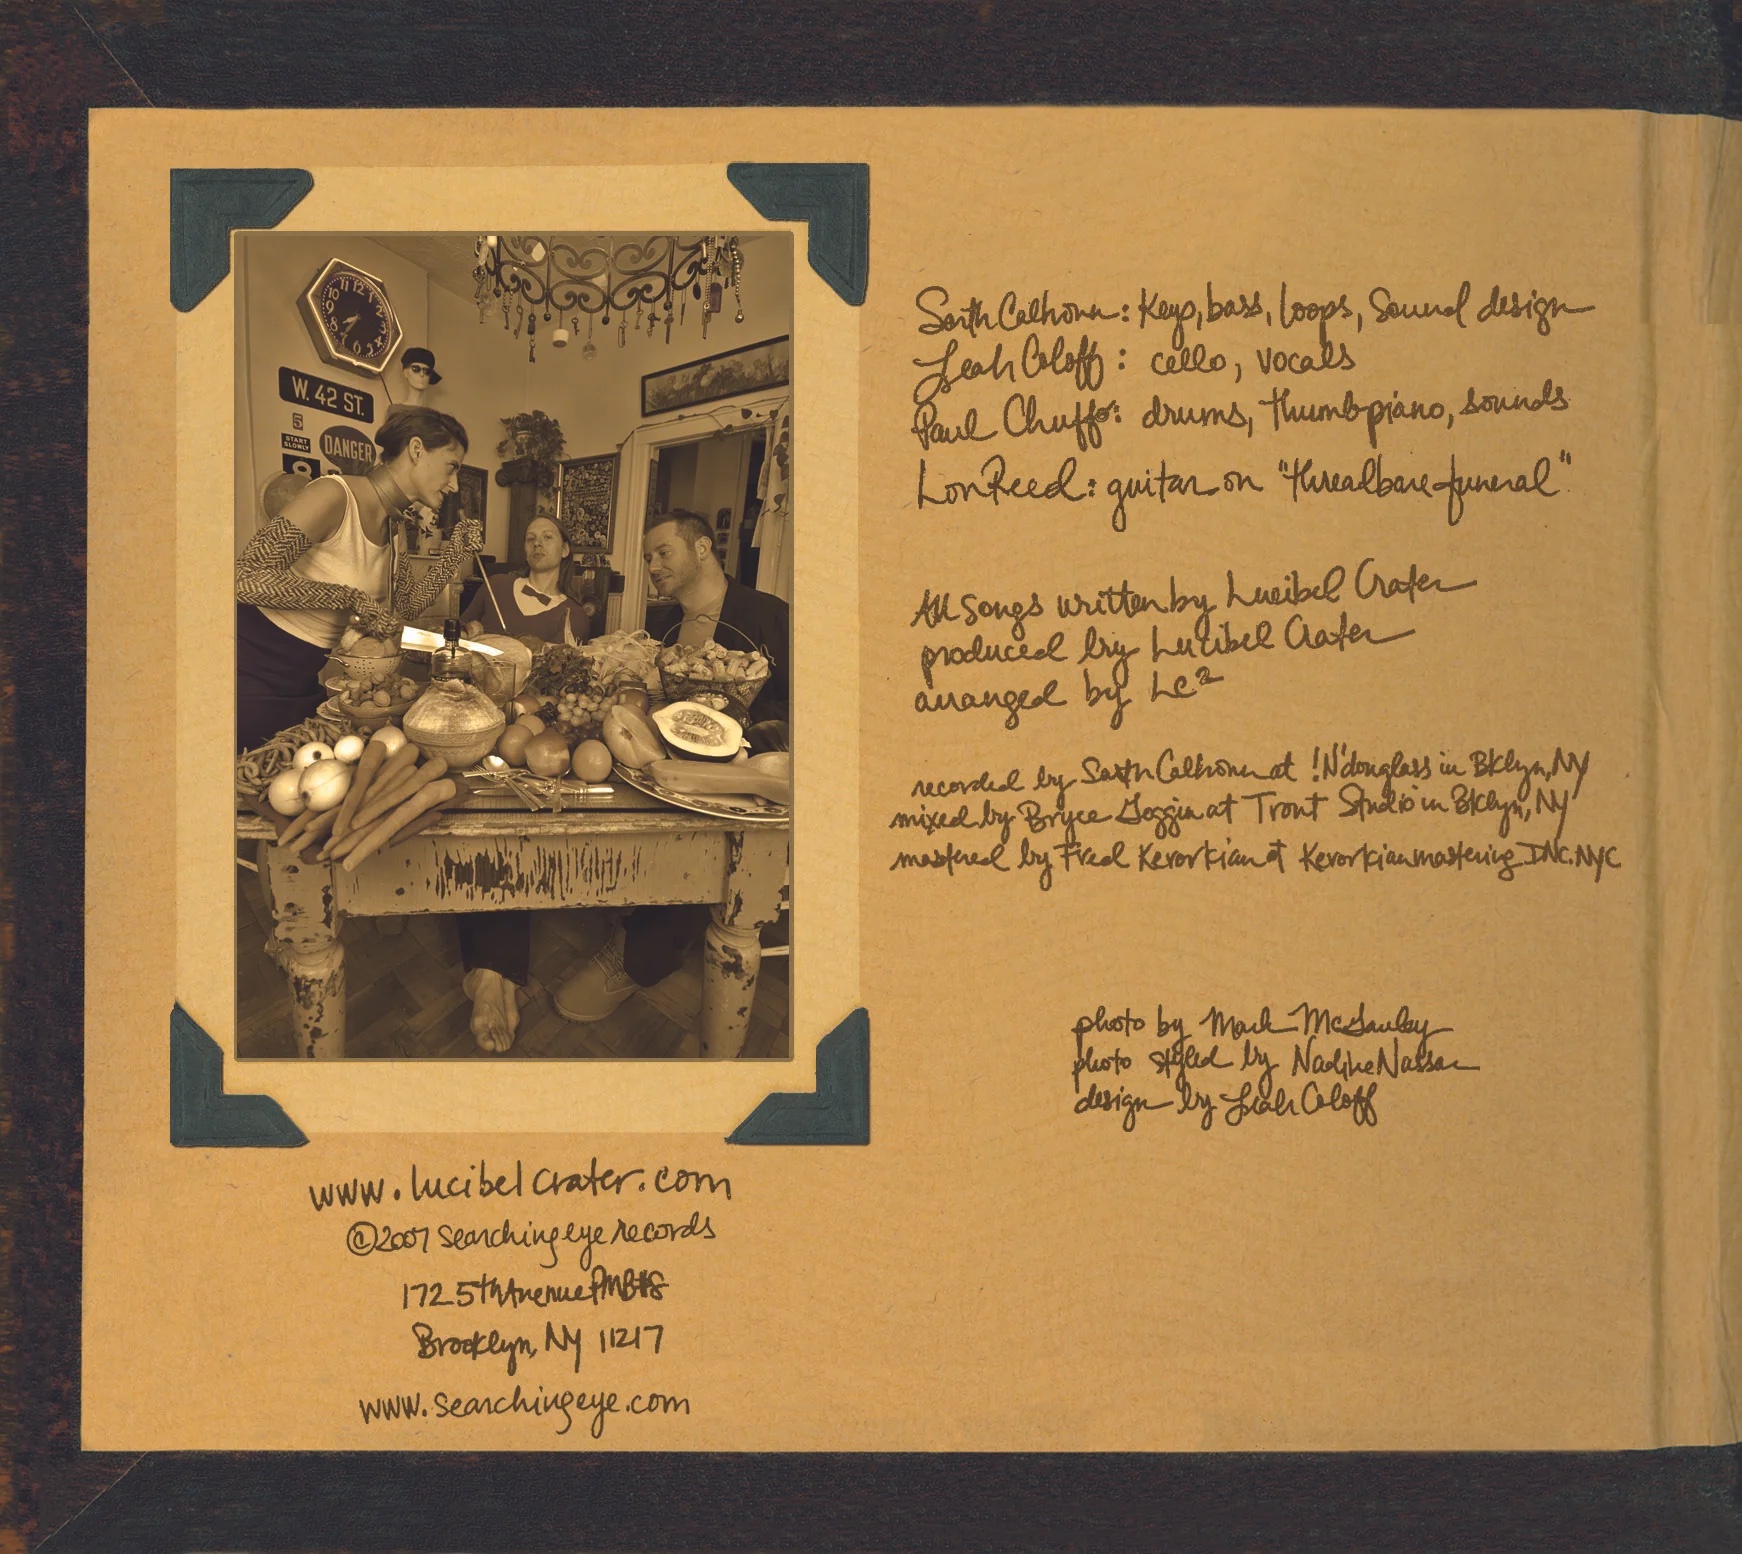 12
11
10
9
8
7
6
5
W. 42 ST.
5
START
SLOWLY
DANGER
8
Sarth Calhoun: Keys, bass, loops, Sound design
Leah Coloff: cello, vocals
Paul Chuffo: drums, thumb-piano, sounds
Lou Reed: guitar on "threadbare funeral"
All songs written by Lucibel Crater
produced by Lucibel Crater
arranged by LC²
recorded by Sarth Calhoun at !N'douglass in Bklyn, NY
mixed by Bryce Goggin at Trout Studio in Bklyn, NY
mastered by Fred Kevorkian at Kevorkian mastering INC. NYC
photo by Mark McGauley
photo styled by Nadine Nassar
design by Leah Coloff
www.lucibelcrater.com
©2007 searchingeye records
172 5th Avenue PMB#8
Brooklyn, NY 11217
www.searchingeye.com